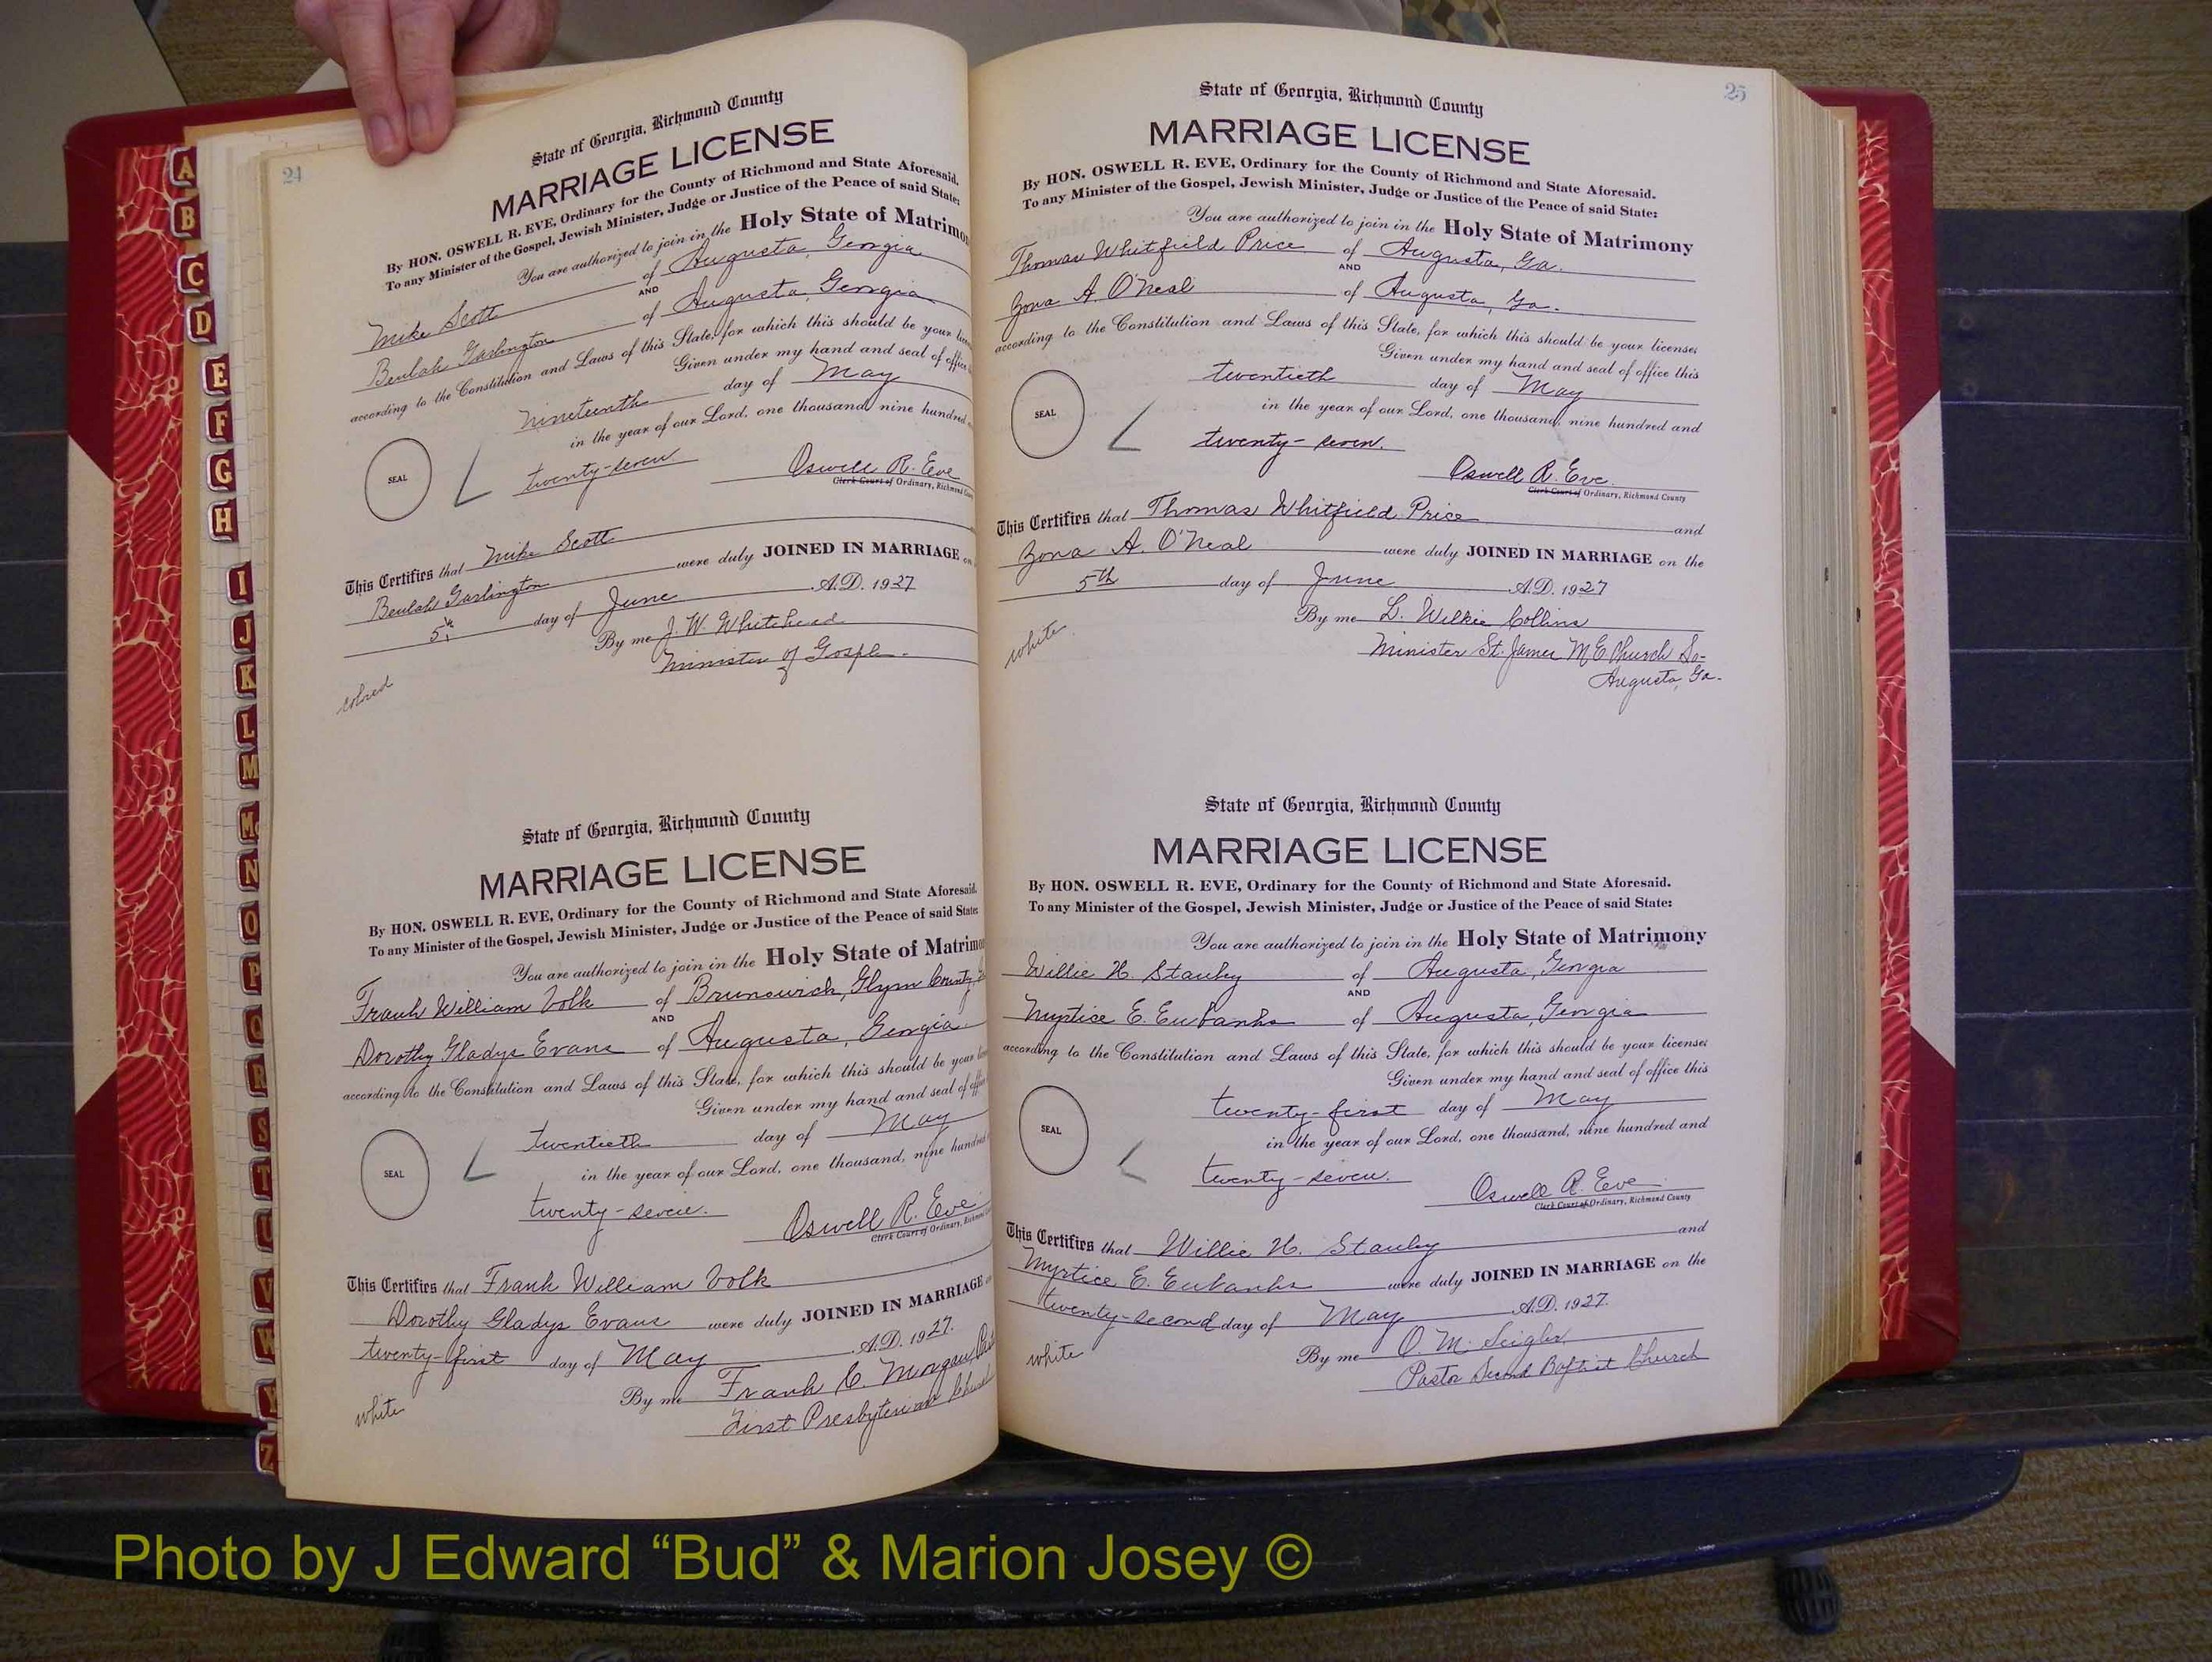 24
State of Georgia, Richmond County
MARRIAGE LICENSE
By HON. OSWELL R. EVE, Ordinary for the County of Richmond and State Aforesaid.
To any Minister of the Gospel, Jewish Minister, Judge or Justice of the Peace of said State:
You are authorized to join in the Holy State of Matrimo
Mike Scott of Augusta, Georgia
AND
Beulah Garlington of Augusta, Georgia
according to the Constitution and Laws of this State, for which this should be your
Given under my hand and seal of office
nineteenth day of May
in the year of our Lord, one thousand, nine hundred
SEAL
twenty-seven
Oswell R. Eve
Clerk Court of Ordinary, Richmond
This Certifies that Mike Scott
Beulah Garlington were duly JOINED IN MARRIAGE on
5th day of June A.D. 1927
By me J. W. Whitehead
Minister of Gospel
colored
State of Georgia, Richmond County
MARRIAGE LICENSE
By HON. OSWELL R. EVE, Ordinary for the County of Richmond and State Aforesaid.
To any Minister of the Gospel, Jewish Minister, Judge or Justice of the Peace of said State:
You are authorized to join in the Holy State of Matrimo
Frank William Volk of Brunswick, Glynn County,
AND
Dorothy Gladys Evans of Augusta, Georgia
according to the Constitution and Laws of this State, for which this should be your
Given under my hand and seal of
twentieth day of May
in the year of our Lord, one thousand, nine hundred
SEAL
twenty-seven.
Oswell R. Eve
Clerk Court of Ordinary, Richmond
This Certifies that Frank William Volk
Dorothy Gladys Evans were duly JOINED IN MARRIAGE
twenty-first day of May A.D. 1927.
By me Frank C. Morgan
First Presbyterian Church
white
25
State of Georgia, Richmond County
MARRIAGE LICENSE
By HON. OSWELL R. EVE, Ordinary for the County of Richmond and State Aforesaid.
To any Minister of the Gospel, Jewish Minister, Judge or Justice of the Peace of said State:
You are authorized to join in the Holy State of Matrimony
Thomas Whitfield Price of Augusta, Ga.
AND
Zona A. O'Neal of Augusta, Ga.
according to the Constitution and Laws of this State, for which this should be your licenses
Given under my hand and seal of office this
twentieth day of May
in the year of our Lord, one thousand, nine hundred and
SEAL
twenty-seven.
Oswell R. Eve.
Clerk Court of Ordinary, Richmond County
This Certifies that Thomas Whitfield Price and
Zona A. O'Neal were duly JOINED IN MARRIAGE on the
5th day of June A.D. 1927
By me L. Wilkie Collins
Minister St. James M E Church So-
Augusta, Ga.
white
State of Georgia, Richmond County
MARRIAGE LICENSE
By HON. OSWELL R. EVE, Ordinary for the County of Richmond and State Aforesaid.
To any Minister of the Gospel, Jewish Minister, Judge or Justice of the Peace of said State:
You are authorized to join in the Holy State of Matrimony
Willie H. Stanley of Augusta, Georgia
AND
Myrtice E. Eubanks of Augusta, Georgia
according to the Constitution and Laws of this State, for which this should be your licenses
Given under my hand and seal of office this
twenty-first day of May
in the year of our Lord, one thousand, nine hundred and
SEAL
twenty-seven.
Oswell R. Eve
Clerk Court of Ordinary, Richmond County
This Certifies that Willie H. Stanley and
Myrtice E. Eubanks were duly JOINED IN MARRIAGE on the
twenty-second day of May A.D. 1927.
By me O. M. Seigler,
Pastor Second Baptist Church
white
A
B
C
D
E
F
G
H
I
J
K
L
M
Mc
N
O
P
Q
R
S
T
U
V
W
Y
Z
Photo by J Edward “Bud” & Marion Josey ©